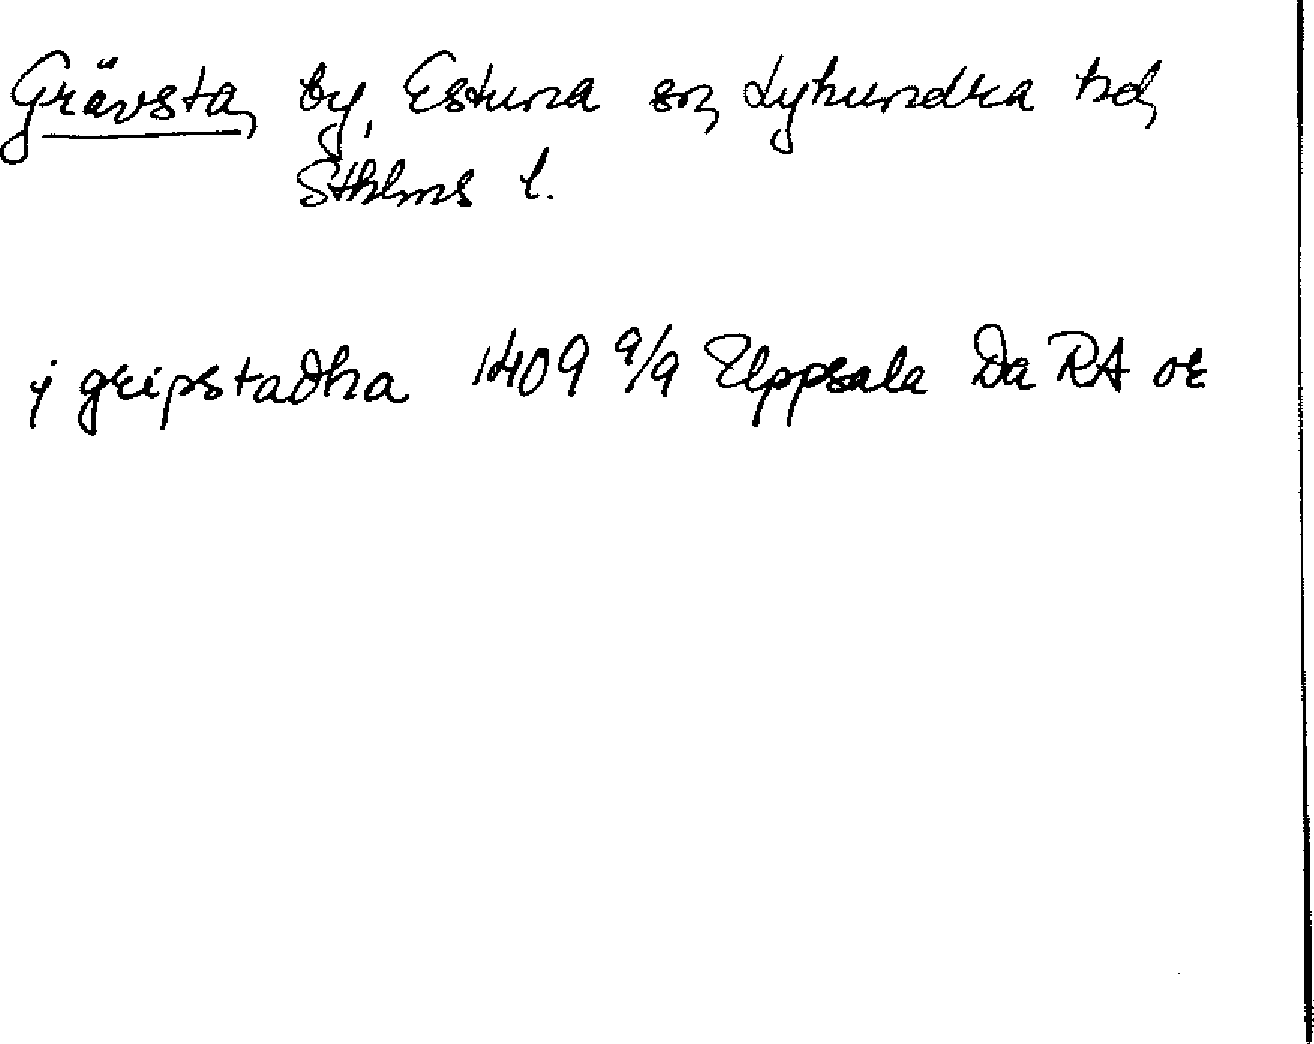 Grävsta, by, Estuna sn, Lyhundra hd,
Sthlms l.
j gripstadha 1409 9/9 Uppsala Da RA or